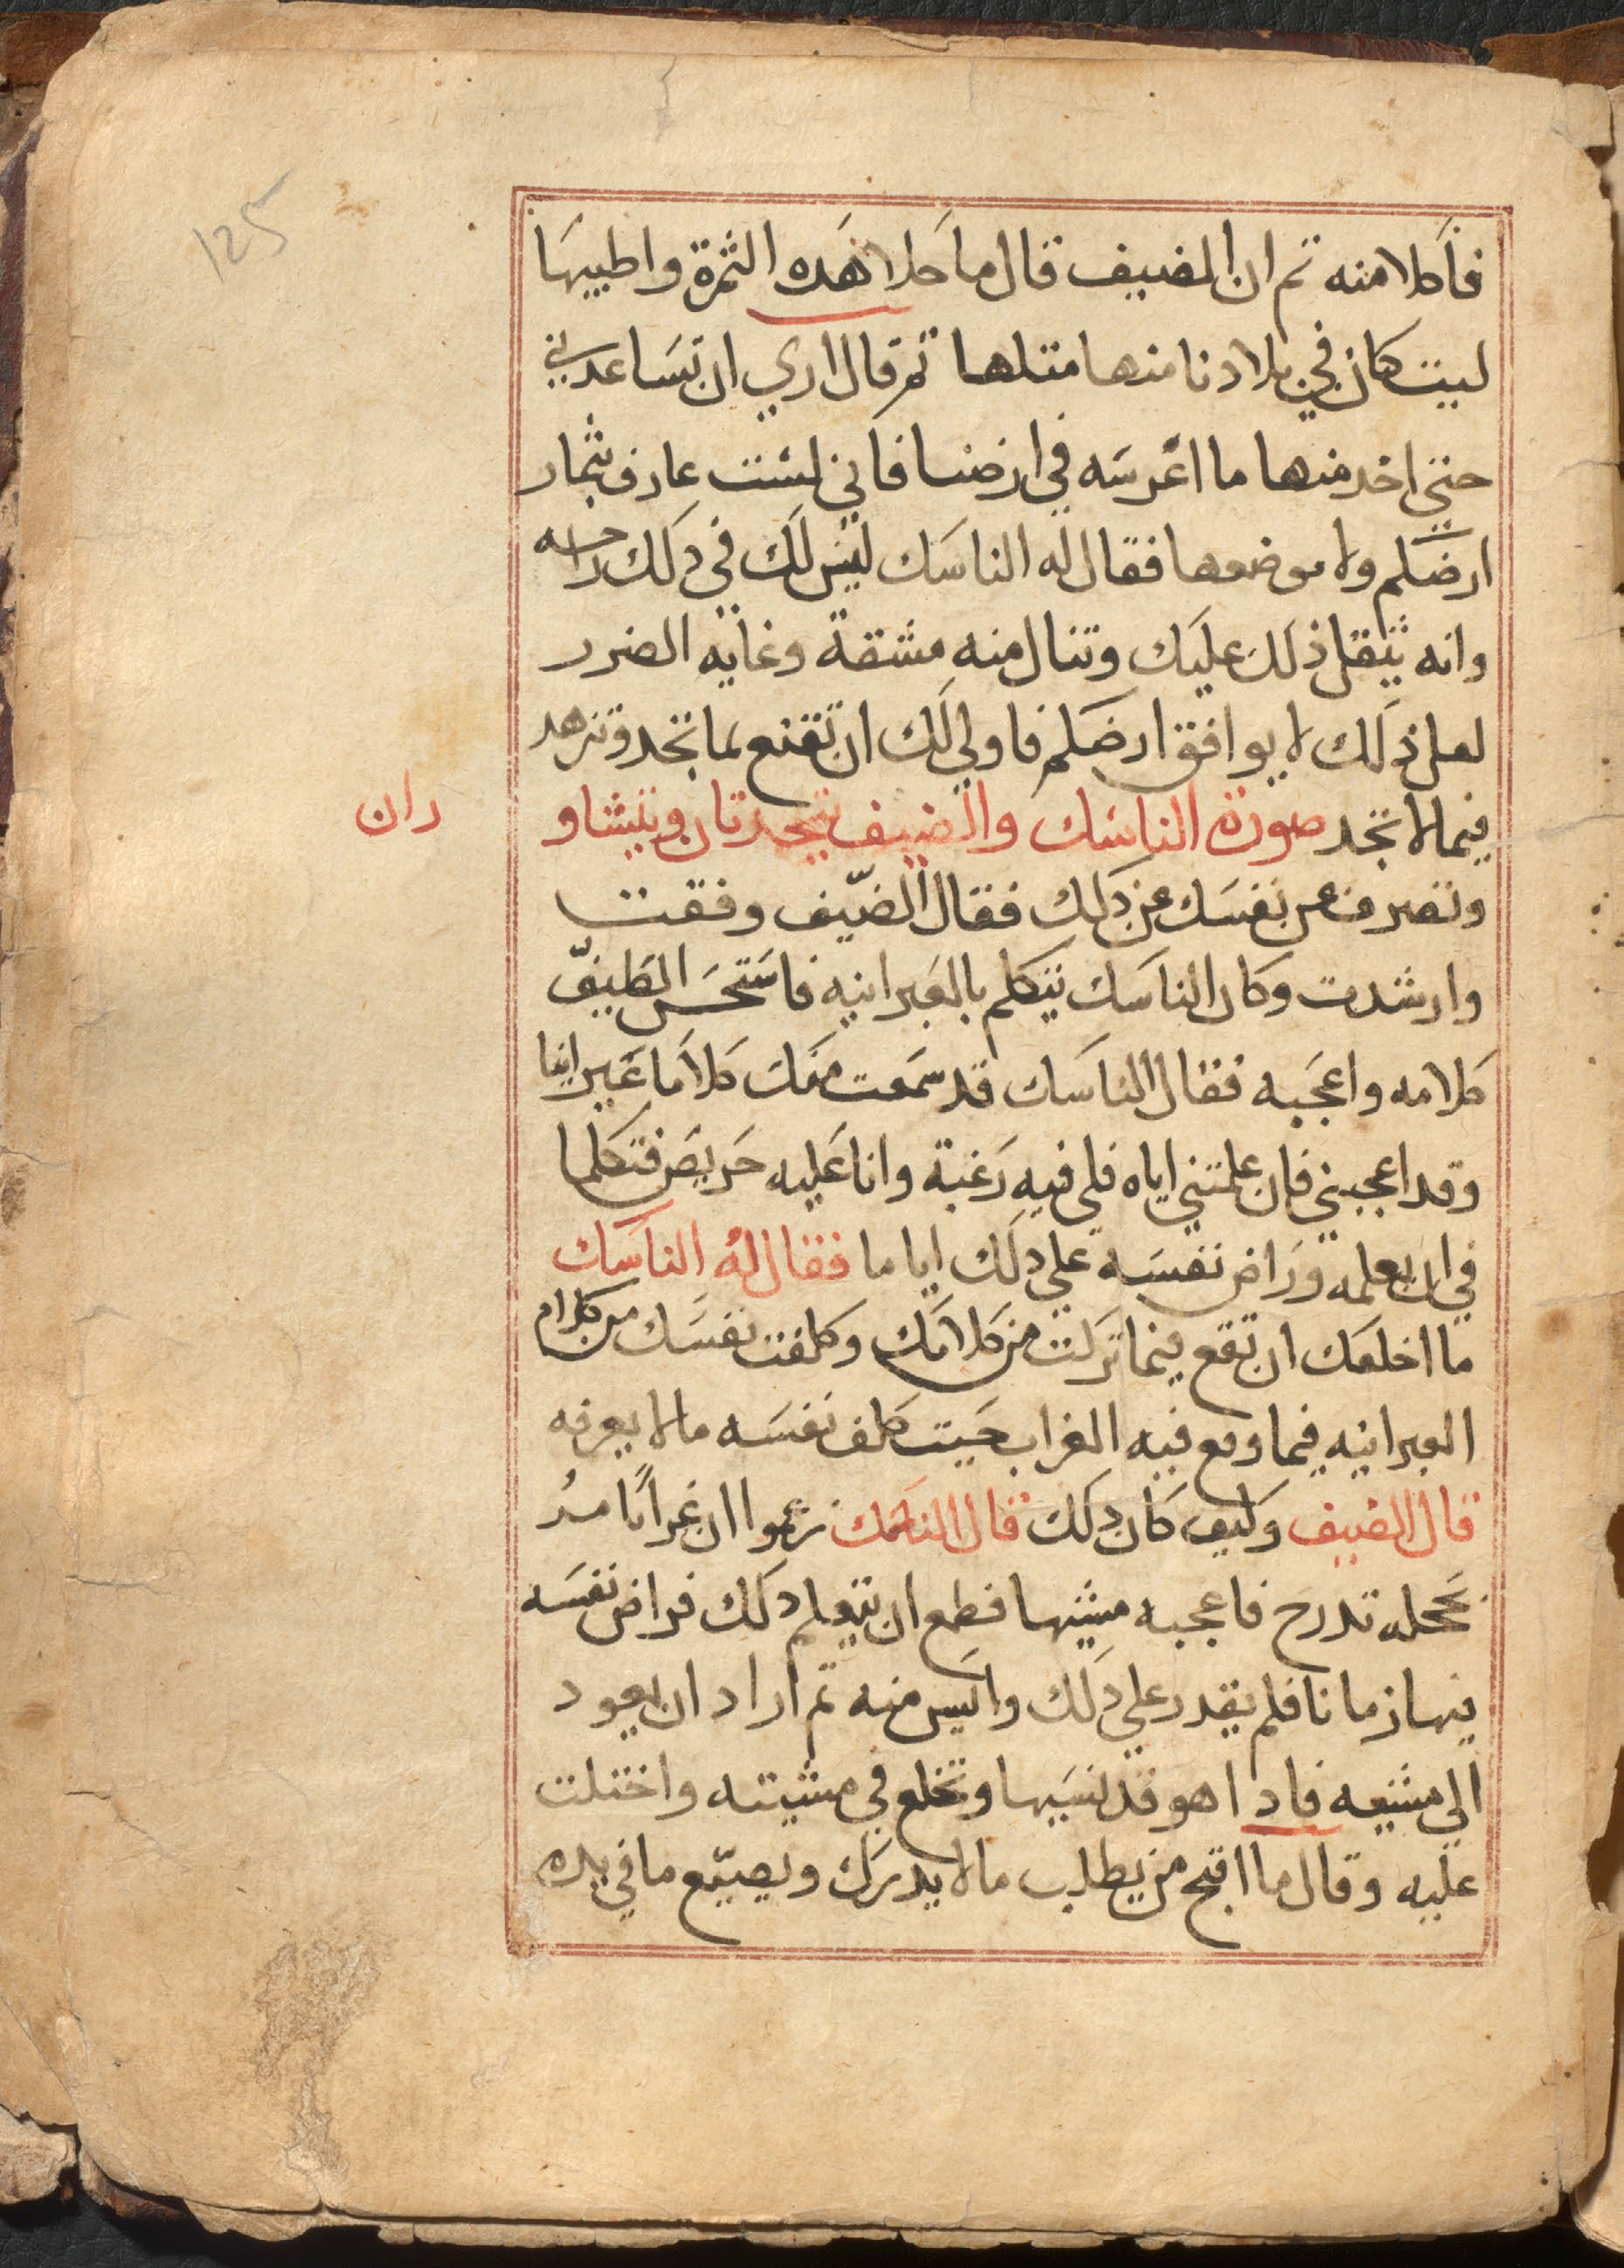 125
فأكلا منه تم ان الضيف قال ما حلا هذه الثمرة واطيبها
ليت كان في بلادنا منها متلها تم قال اري ان تساعدني
حتي اخد منها ما اغرسه في ارضنا فاني لست عارف بثمار
ارضكم ولا موضعها فقال له الناسك ليس لك في دلك راحه
وانه يثقل ذلك عليك وتنال منه مشقة وغايه الضرر
لعل ذلك لا يوافق ارضكم فاولي لك ان تقنع بما تجد وتزهد
فيما لا تجد صورة الناسك والضيف يتحدتان ويتشاو
ران
وتصرف عن نفسك عن دلك فقال الضيف وفقت
وارشدت وكان الناسك يتكلم بالعبرانيه فاستحسن الضيف
كلامه واعجبه فقال للناسك قد سمعت منك كلاما عبرانيا
وقد اعجبني فان علمتني اياه فلي فيه رغبة وانا عليه حريص فتكلما
في ان يعلمه وراض نفسه علي دلك اياما فقال له الناسك
ما اخلعك ان تقع فيما تركت من كلامك وكلفت نفسك من كلام
العبرانيه فيما وقع فيه الغراب حيت كلف نفسه ما لا يعرفه
قال الضيف وكيف كان دلك قال الناسك زعموا ان غرابًا مر
بحجله تدرج فاعجبه مشيها فطمع ان يتعلم دلك فراض نفسه
فيها زمانا فلم يقدر علي دلك وايس منه تم اراد ان يعود
الي مشيه فادا هو قد نسيها وتخلع في مشيته واختلت
عليه وقال ما اقبح من يطلب ما لا يدرك ويضيّع ما في يده